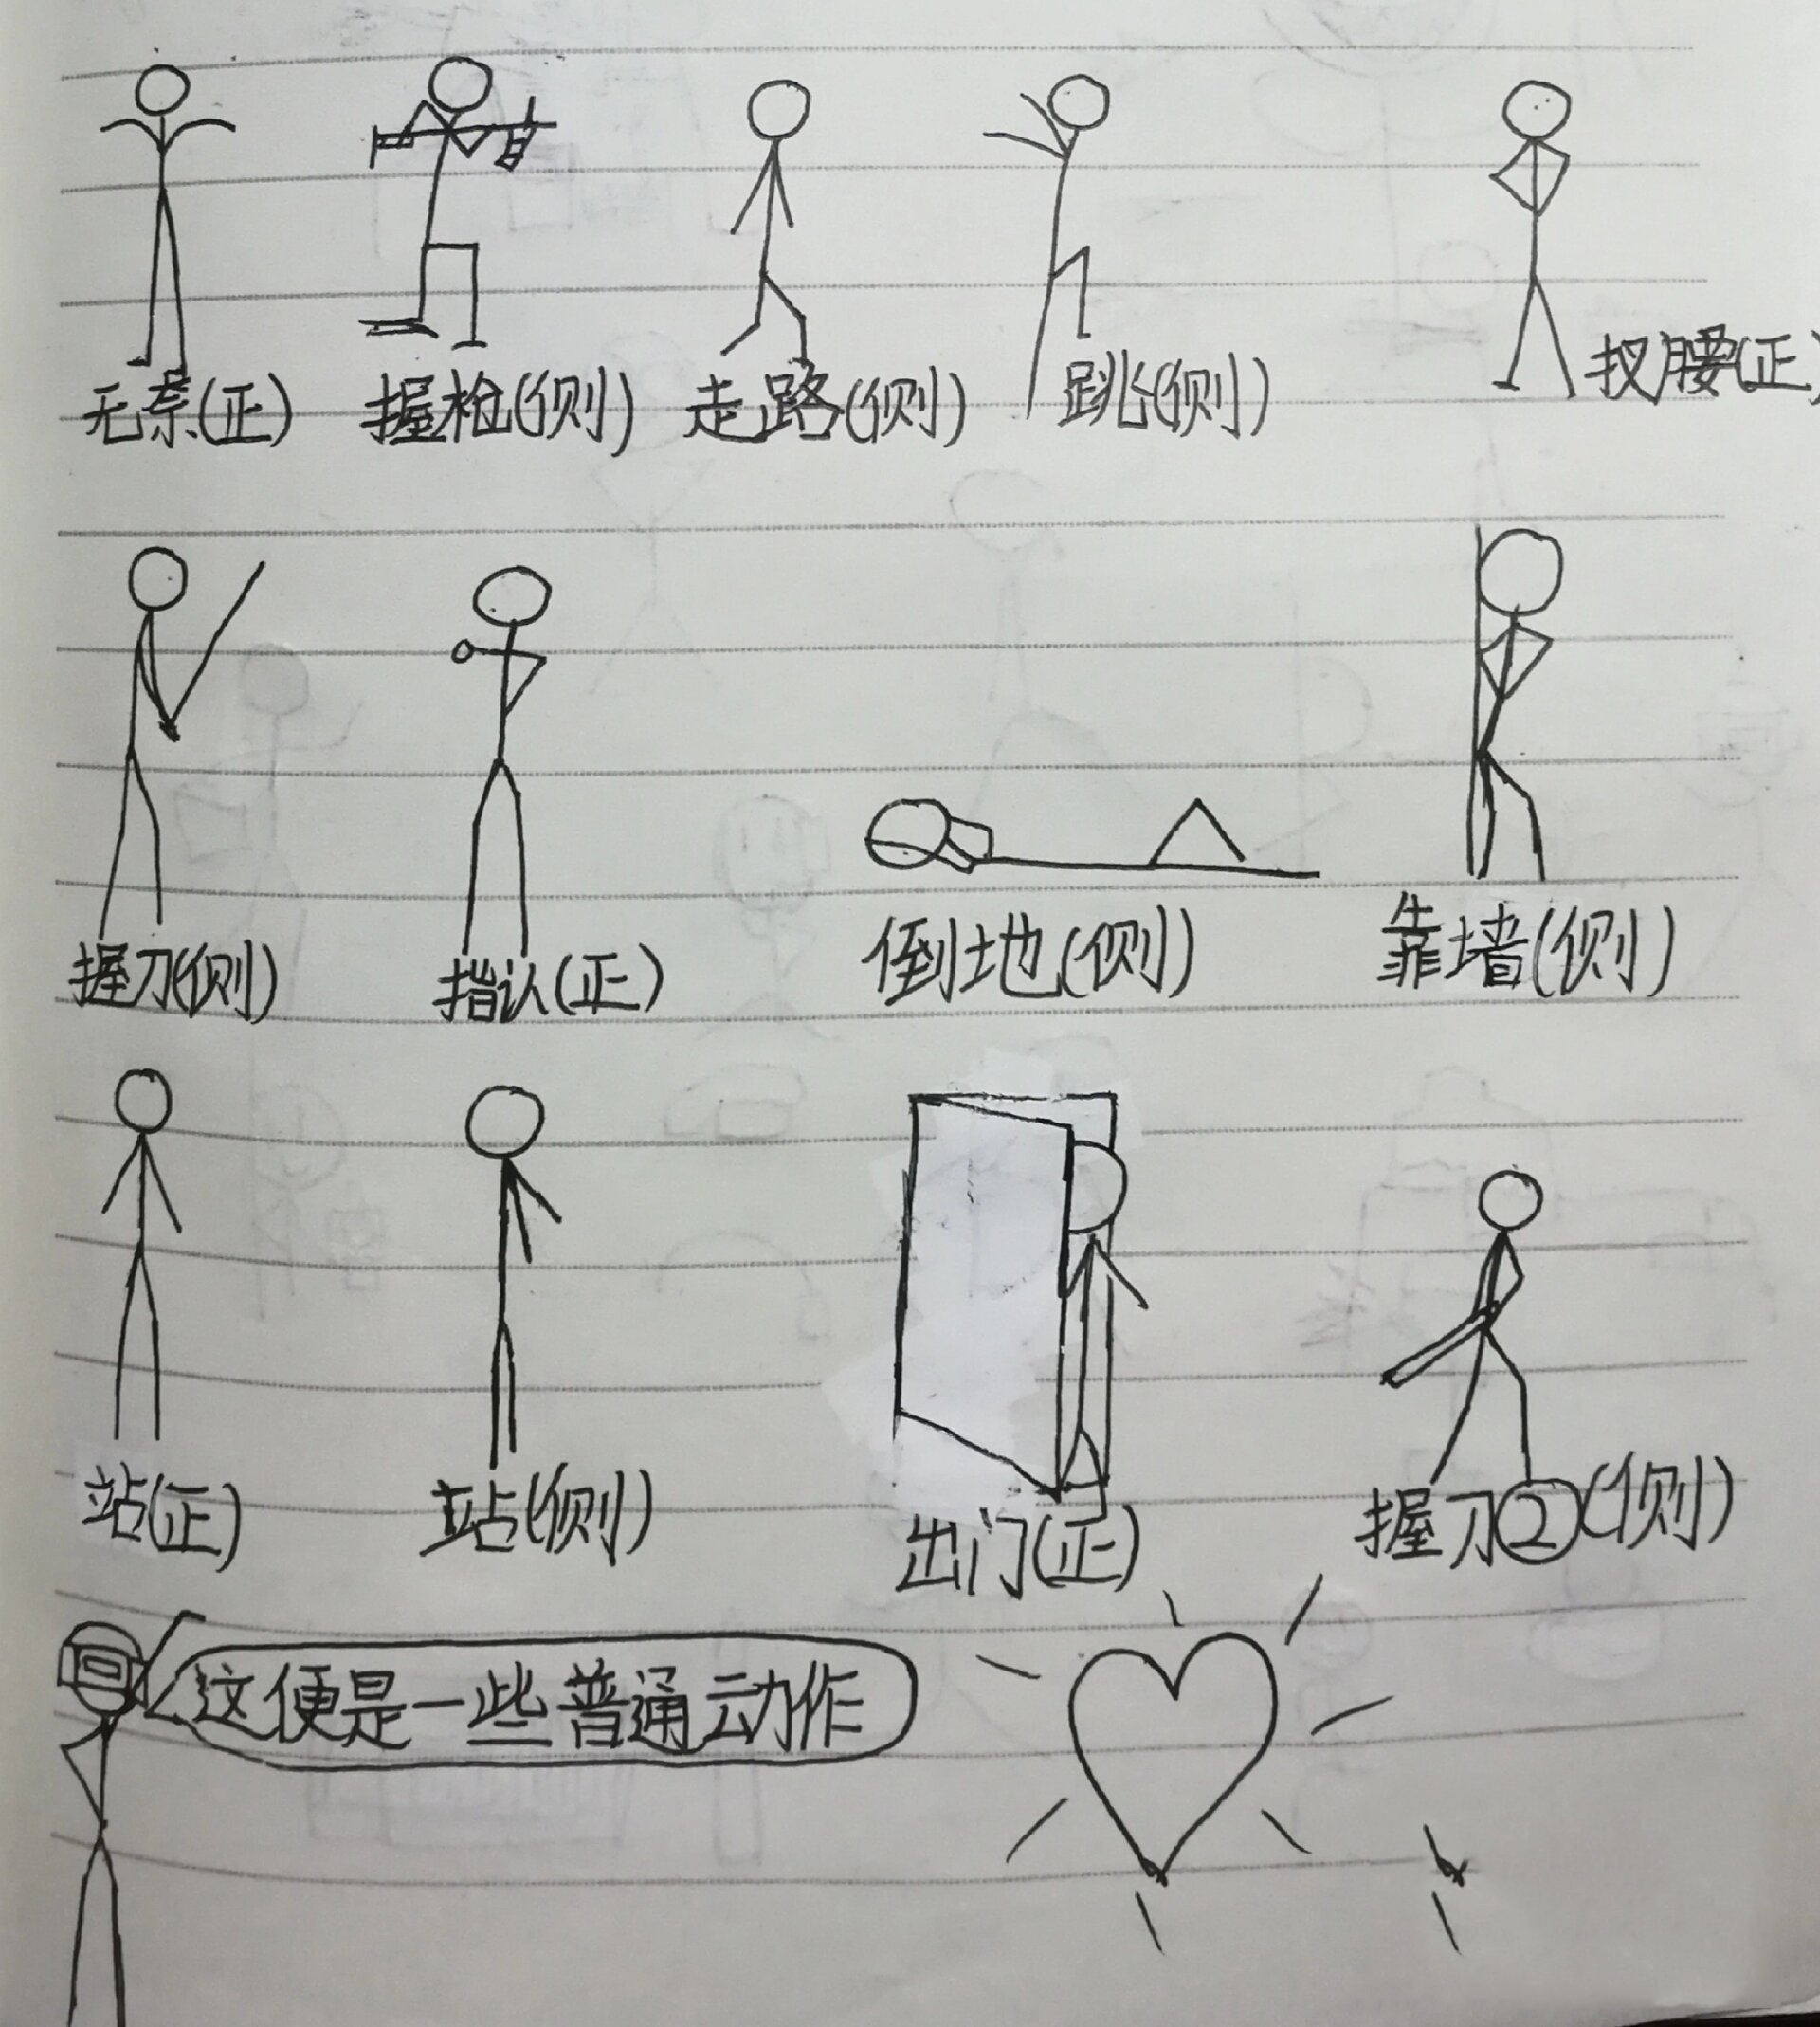 无奈(正) 握枪(侧) 走路(侧) 跳(侧) 扠腰(正)
握刀(侧) 指认(正) 倒地(侧) 靠墙(侧)
站(正) 站(侧) 出门(正) 握刀②(侧)
这便是一些普通动作